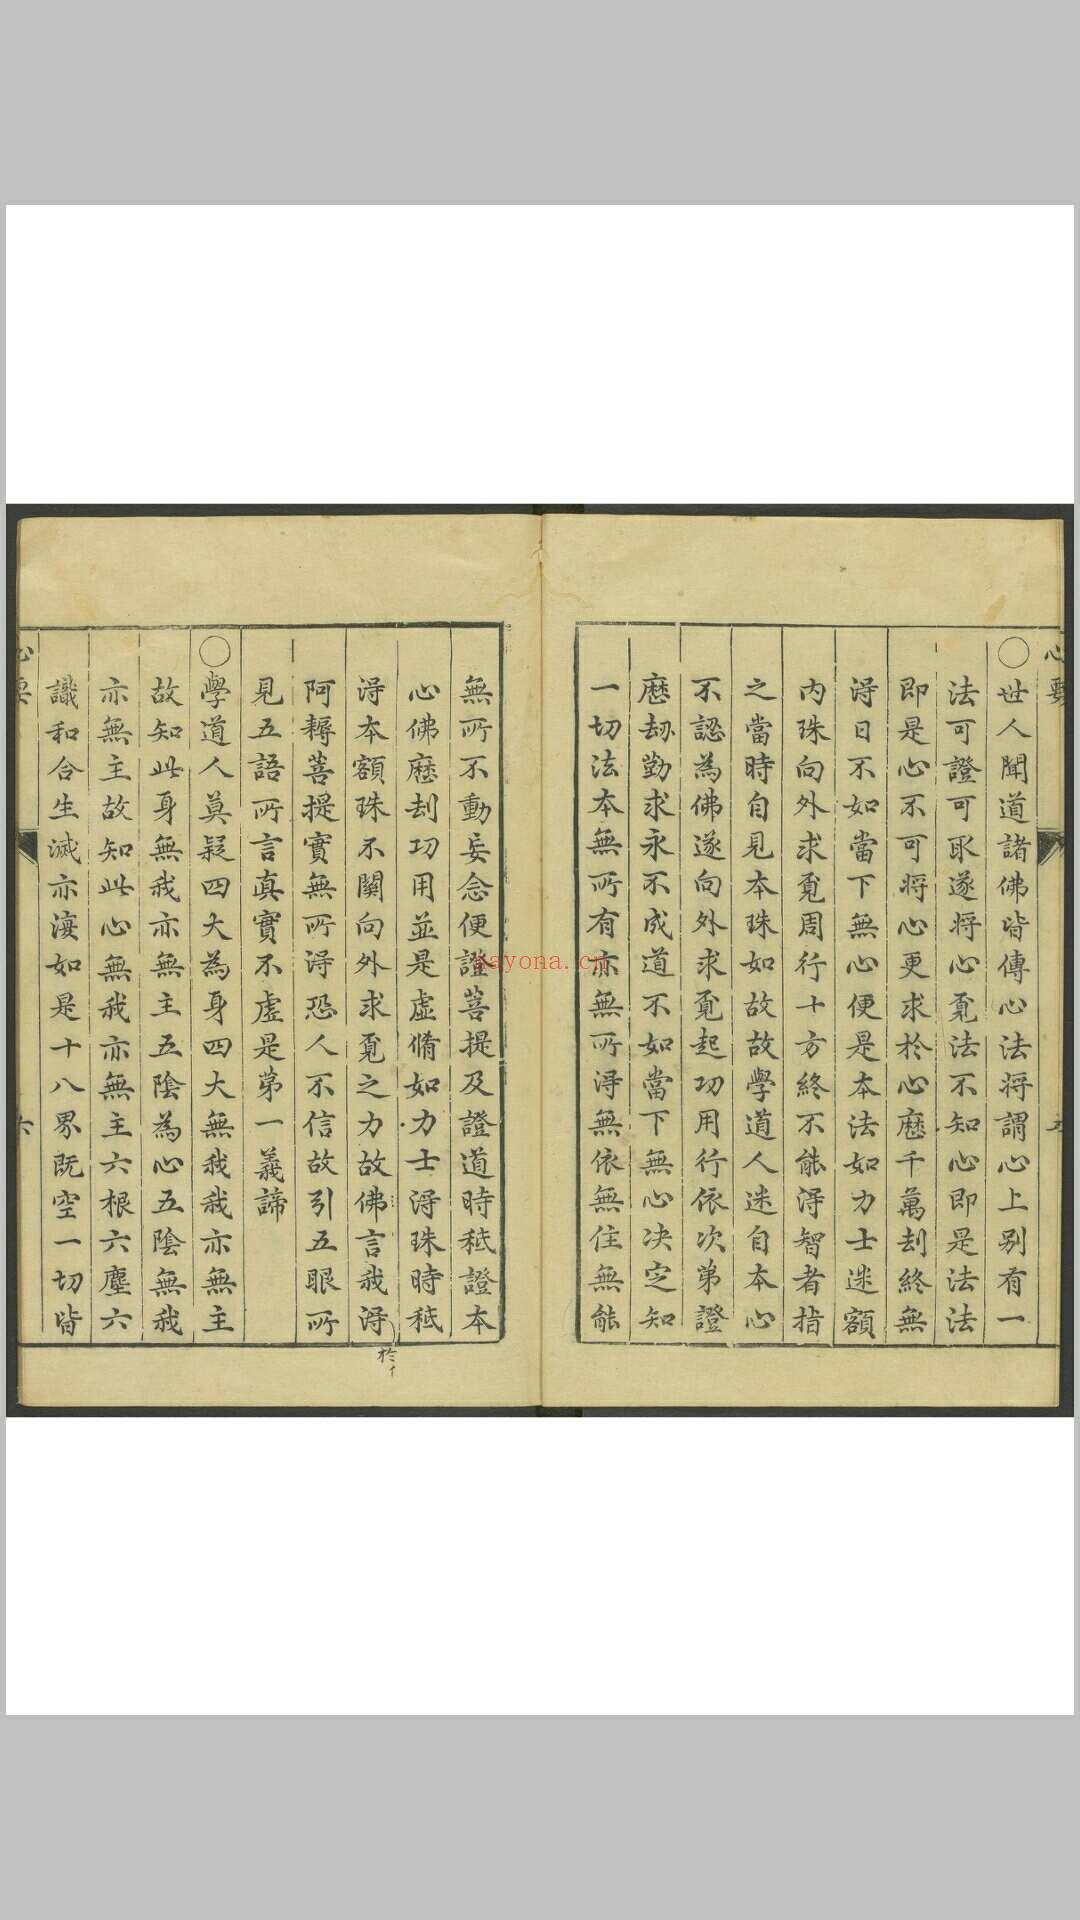 心要
○世人聞道諸佛皆傳心法将謂心上别有一
法可證可取遂将心覔法不知心即是法法
即是心不可将心更求於心歴千萬刦終無
得日不如當下無心便是本法如力士迷額
内珠向外求覔周行十方終不能得智者指
之當時自見本珠如故故學道人迷自本心
不認為佛遂向外求覔起功用行依次第證
歴刼勤求永不成道不如當下無心决定知
一切法本無所有亦無所得無依無住無能
無所不動妄念便證菩提及證道時秪證本
心佛歴刦功用並是虚脩如力士得珠時秪
得本額珠不關向外求覔之力故佛言我得
於
阿耨菩提實無所得恐人不信故引五眼所
見五語所言真實不虚是第一義諦
○學道人莫疑四大為身四大無我我亦無主
故知此身無我亦無主五陰為心五陰無我
亦無主故知此心無我亦無主六根六塵六
識和合生滅亦復如是十八界既空一切皆
心要
六
kayona.cn